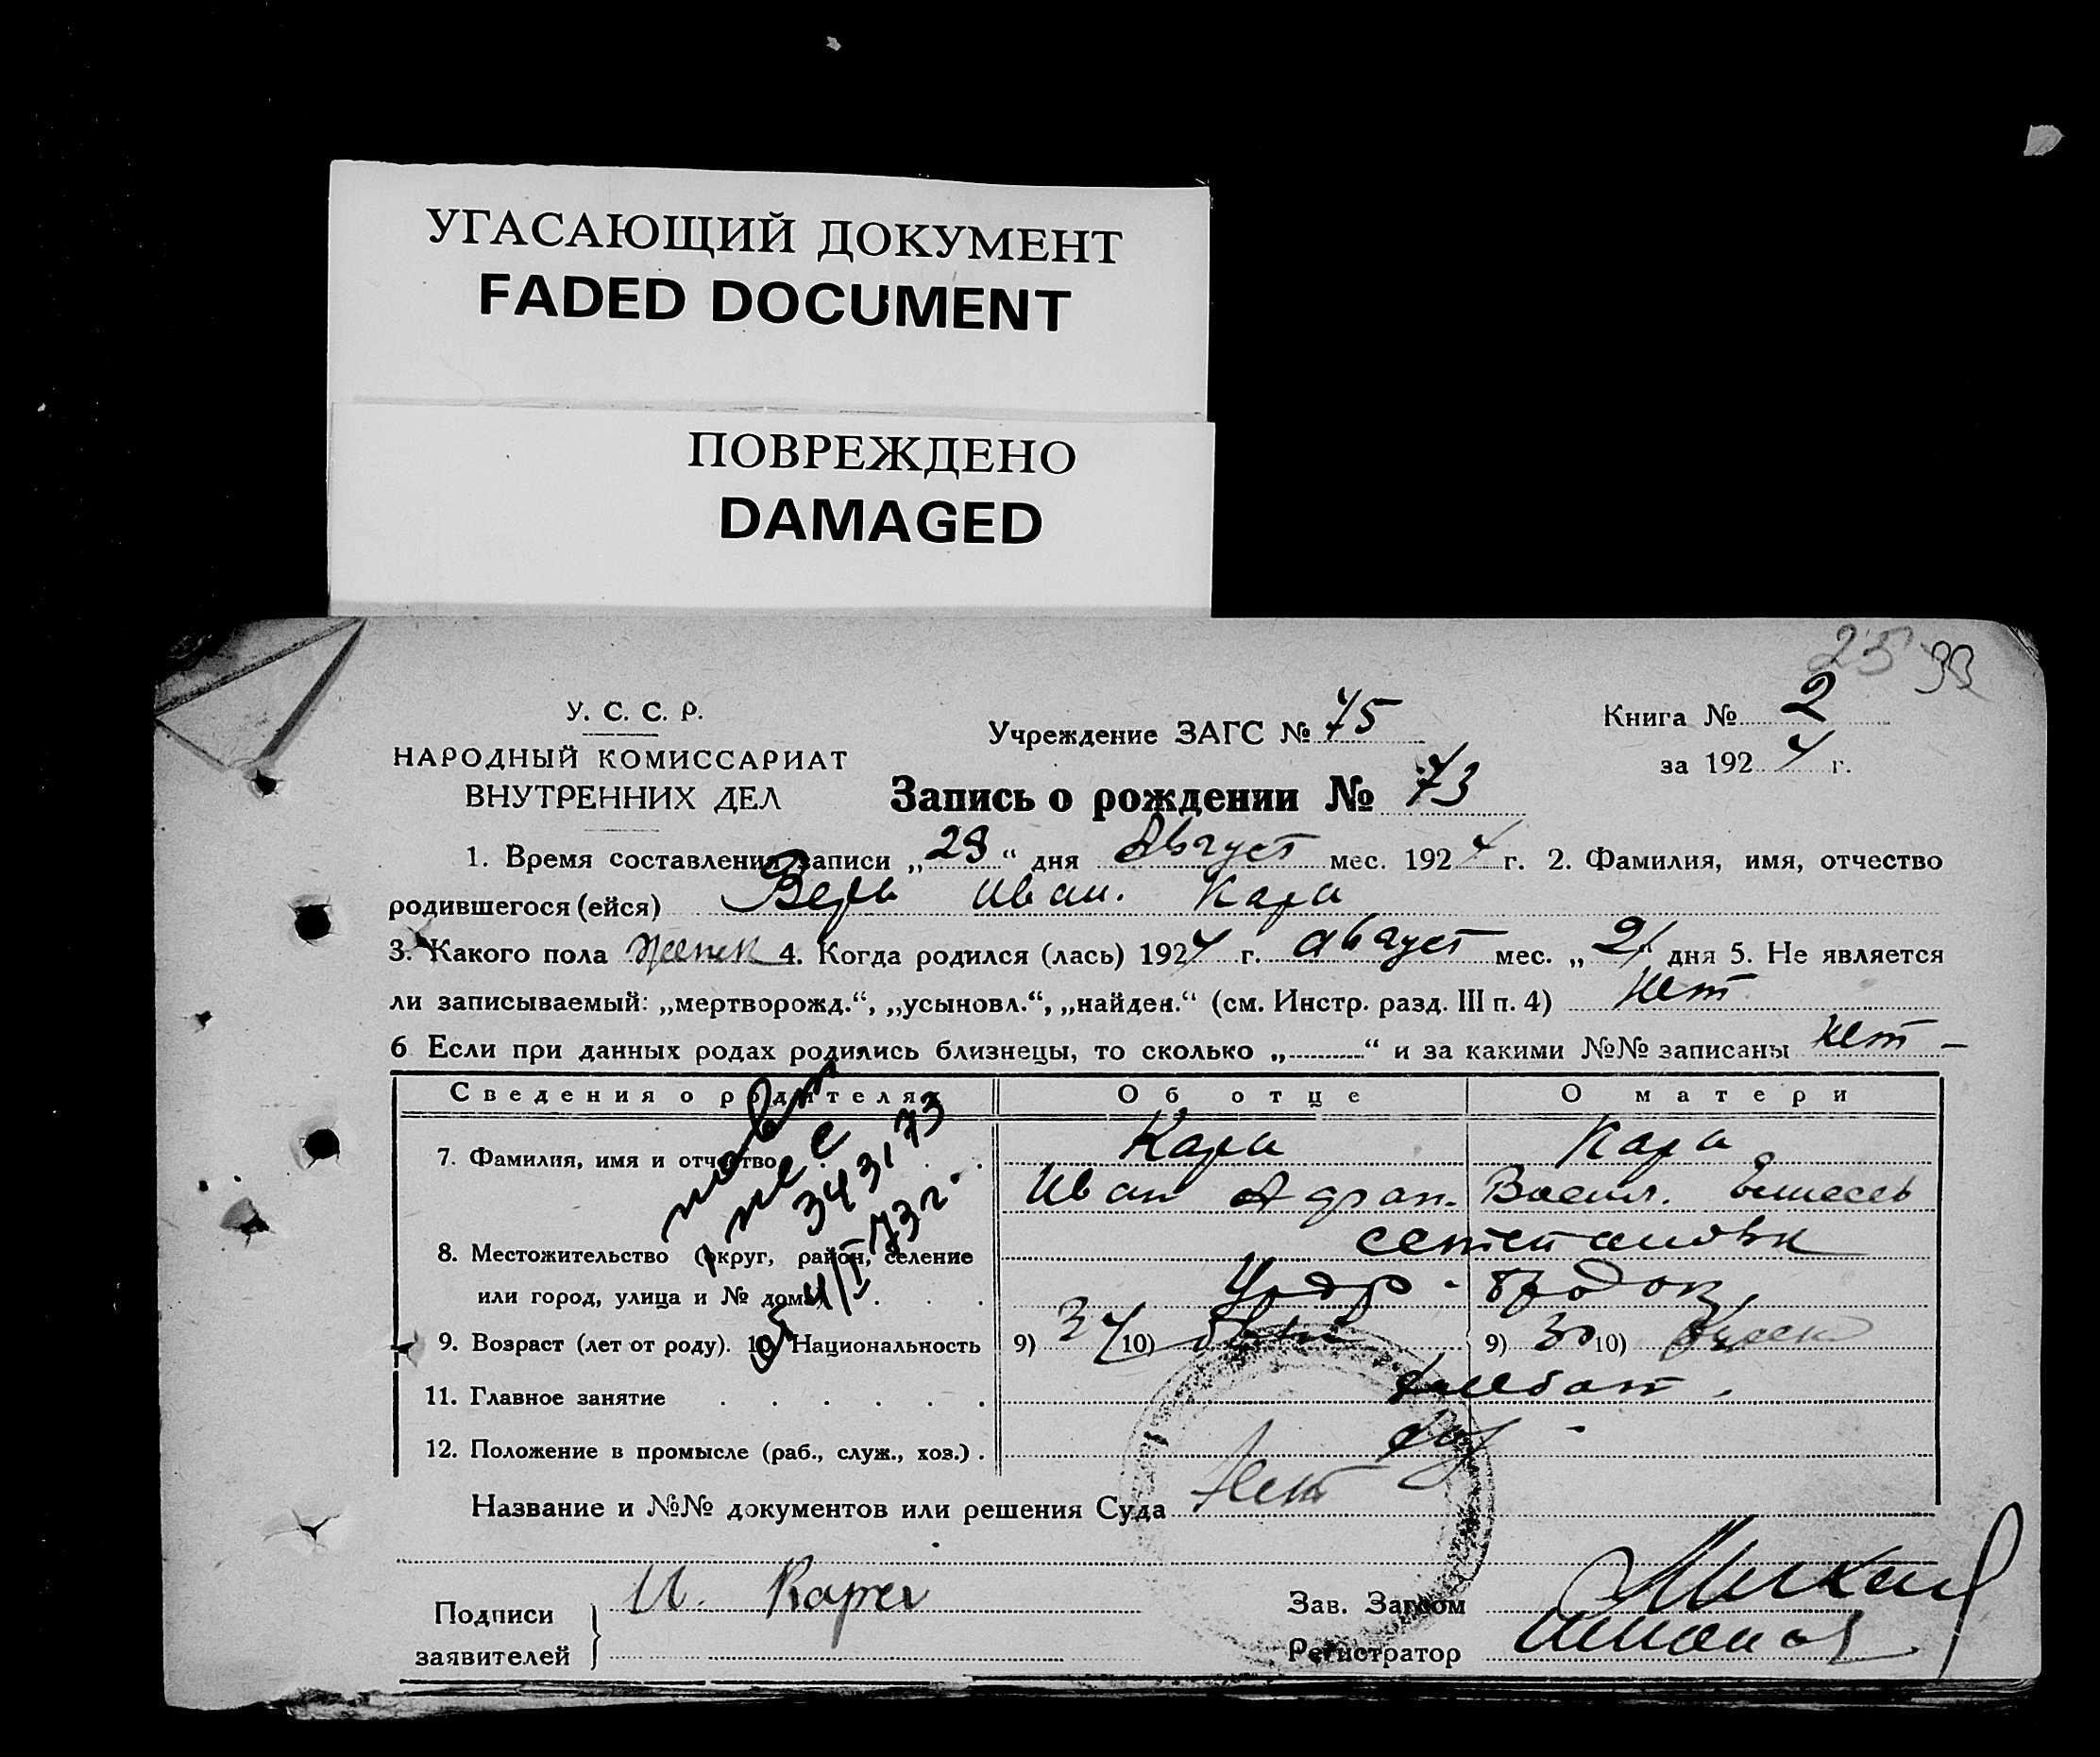 УГАСАЮЩИЙ ДОКУМЕНТ
FADED DOCUMENT
ПОВРЕЖДЕНО
DAMAGED
25 33
У. С. С. Р.
НАРОДНЫЙ КОМИССАРИАТ
ВНУТРЕННИХ ДЕЛ
Учреждение ЗАГС № 75
Книга № 2
за 1924 г.
Запись о рождении № 73
1. Время составления записи „ “ дня Август мес. 1924 г. 2. Фамилия, имя, отчество
родившегося (ейся) Вера Иван. Кара
3. Какого пола женск 4. Когда родился (лась) 1924 г. август мес. „21“ дня 5. Не является
ли записываемый: „мертворожд.“, „усыновл.“, „найден.“ (см. Инстр. разд. III п. 4) Нет
6 Если при данных родах родились близнецы, то сколько „ “ и за какими №№ записаны нет –
Сведения о родителях Об отце О матери
7. Фамилия, имя и отчество Кара Кара
Иван Адран. Васил.
8. Местожительство (округ, район, селение
или город, улица и № дома)
9. Возраст (лет от роду). 10. Национальность 9) 34 10) 9) 30 10)
11. Главное занятие хлебоп.
12. Положение в промысле (раб., служ., хоз.) .
Название и №№ документов или решения Суда Нет
Подписи
заявителей
И. Кара
Зав. Загсом
Регистратор